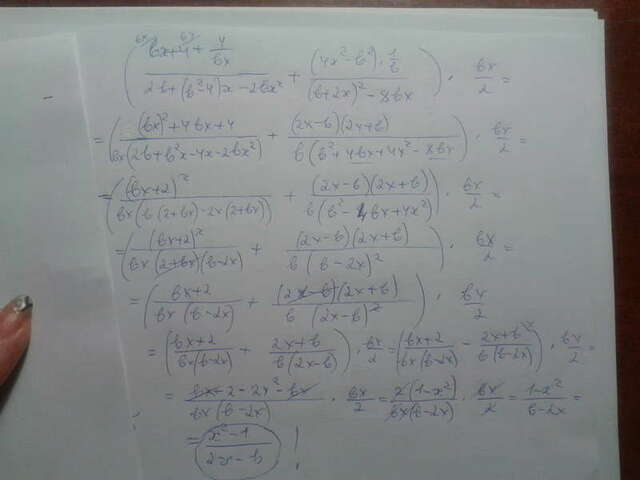 ( (bx+4+4/(bx))/(2b+(b²-4)x-2bx²) + ((4x²-b²)·1/b)/((b+2x)²-8bx) ) · bx/2 =
= ( ((bx)²+4bx+4)/(bx(2b+b²x-4x-2bx²)) + ((2x-b)(2x+b))/(b(b²+4bx+4x²-8bx)) ) · bx/2 =
= ( (bx+2)²/(bx(b(2+bx)-2x(2+bx))) + ((2x-b)(2x+b))/(b(b²-4bx+4x²)) ) · bx/2 =
= ( (bx+2)²/(bx(2+bx)(b-2x)) + ((2x-b)(2x+b))/(b(b-2x)²) ) · bx/2 =
= ( (bx+2)/(bx(b-2x)) + ((2x-b)(2x+b))/(b(2x-b)²) ) · bx/2
= ( (bx+2)/(bx(b-2x)) + (2x+b)/(b(2x-b)) ) · bx/2 = ( (bx+2)/(bx(b-2x)) - (2x+b)/(b(b-2x)) ) · bx/2 =
= (bx+2-2x²-bx)/(bx(b-2x)) · bx/2 = (2(1-x²))/(bx(b-2x)) · bx/2 = (1-x²)/(b-2x) =
= (x²-1)/(2x-b) !